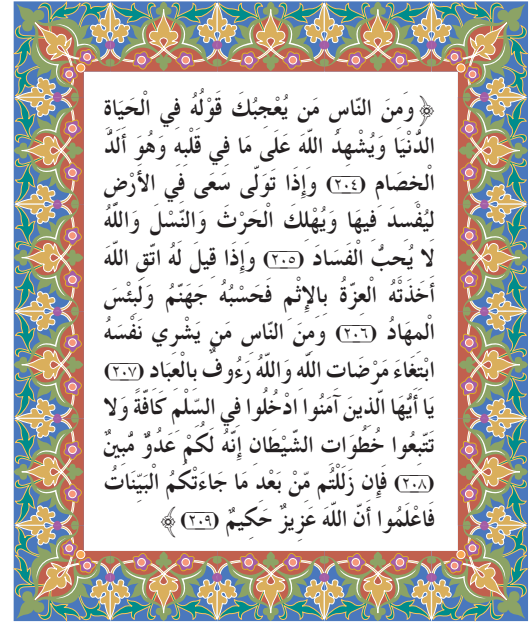 ﴿ وَمِنَ النَّاسِ مَن يُعْجِبُكَ قَوْلُهُ فِي الْحَيَاةِ
الدُّنْيَا وَيُشْهِدُ اللَّهَ عَلَى مَا فِي قَلْبِهِ وَهُوَ أَلَدُّ
الْخِصَامِ (٢٠٤) وَإِذَا تَوَلَّى سَعَى فِي الأَرْضِ
لِيُفْسِدَ فِيهَا وَيُهْلِكَ الْحَرْثَ وَالنَّسْلَ وَاللَّهُ
لا يُحِبُّ الْفَسَادَ (٢٠٥) وَإِذَا قِيلَ لَهُ اتَّقِ اللَّهَ
أَخَذَتْهُ الْعِزَّةُ بِالإِثْمِ فَحَسْبُهُ جَهَنَّمُ وَلَبِئْسَ
الْمِهَادُ (٢٠٦) وَمِنَ النَّاسِ مَن يَشْرِي نَفْسَهُ
ابْتِغَاءَ مَرْضَاتِ اللَّهِ وَاللَّهُ رَءُوفٌ بِالْعِبَادِ (٢٠٧)
يَا أَيُّهَا الَّذِينَ آمَنُوا ادْخُلُوا فِي السِّلْمِ كَافَّةً وَلا
تَتَّبِعُوا خُطُوَاتِ الشَّيْطَانِ إِنَّهُ لَكُمْ عَدُوٌّ مُّبِينٌ
(٢٠٨) فَإِن زَلَلْتُم مِّنْ بَعْدِ مَا جَاءَتْكُمُ الْبَيِّنَاتُ
فَاعْلَمُوا أَنَّ اللَّهَ عَزِيزٌ حَكِيمٌ (٢٠٩) ﴾